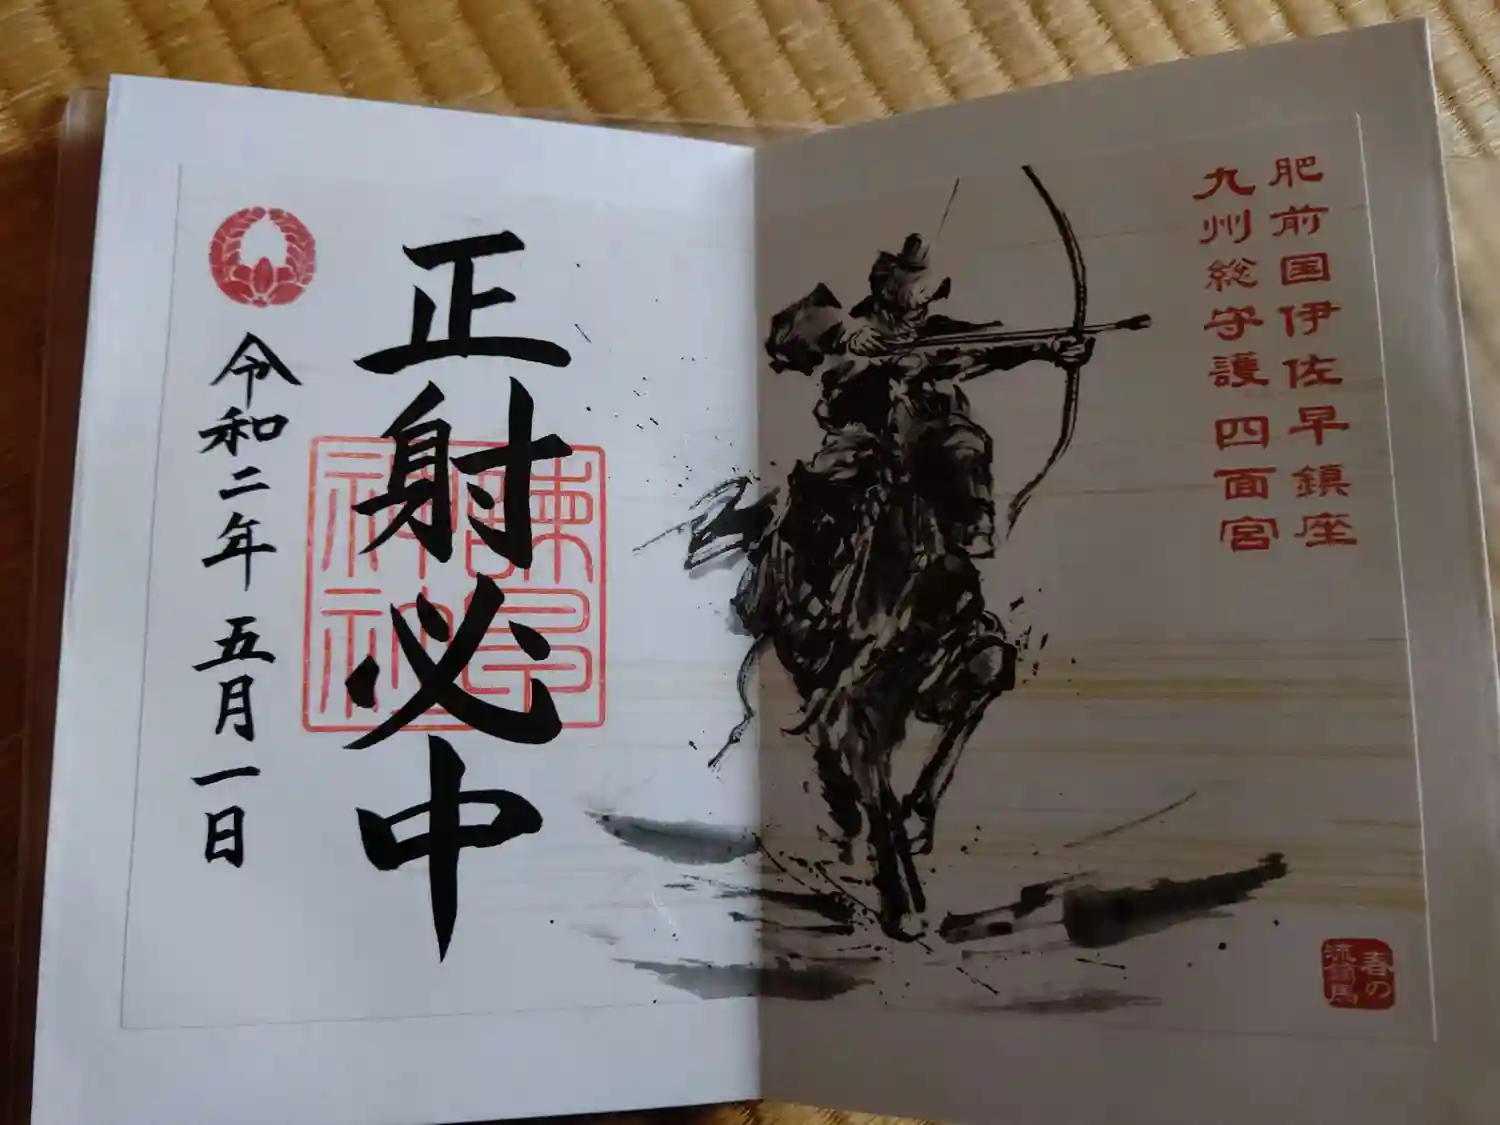 肥前国伊佐早鎮座
九州総守護 四面宮
春の
流鏑馬
正射必中
諫早
神社
令和二年 五月一日